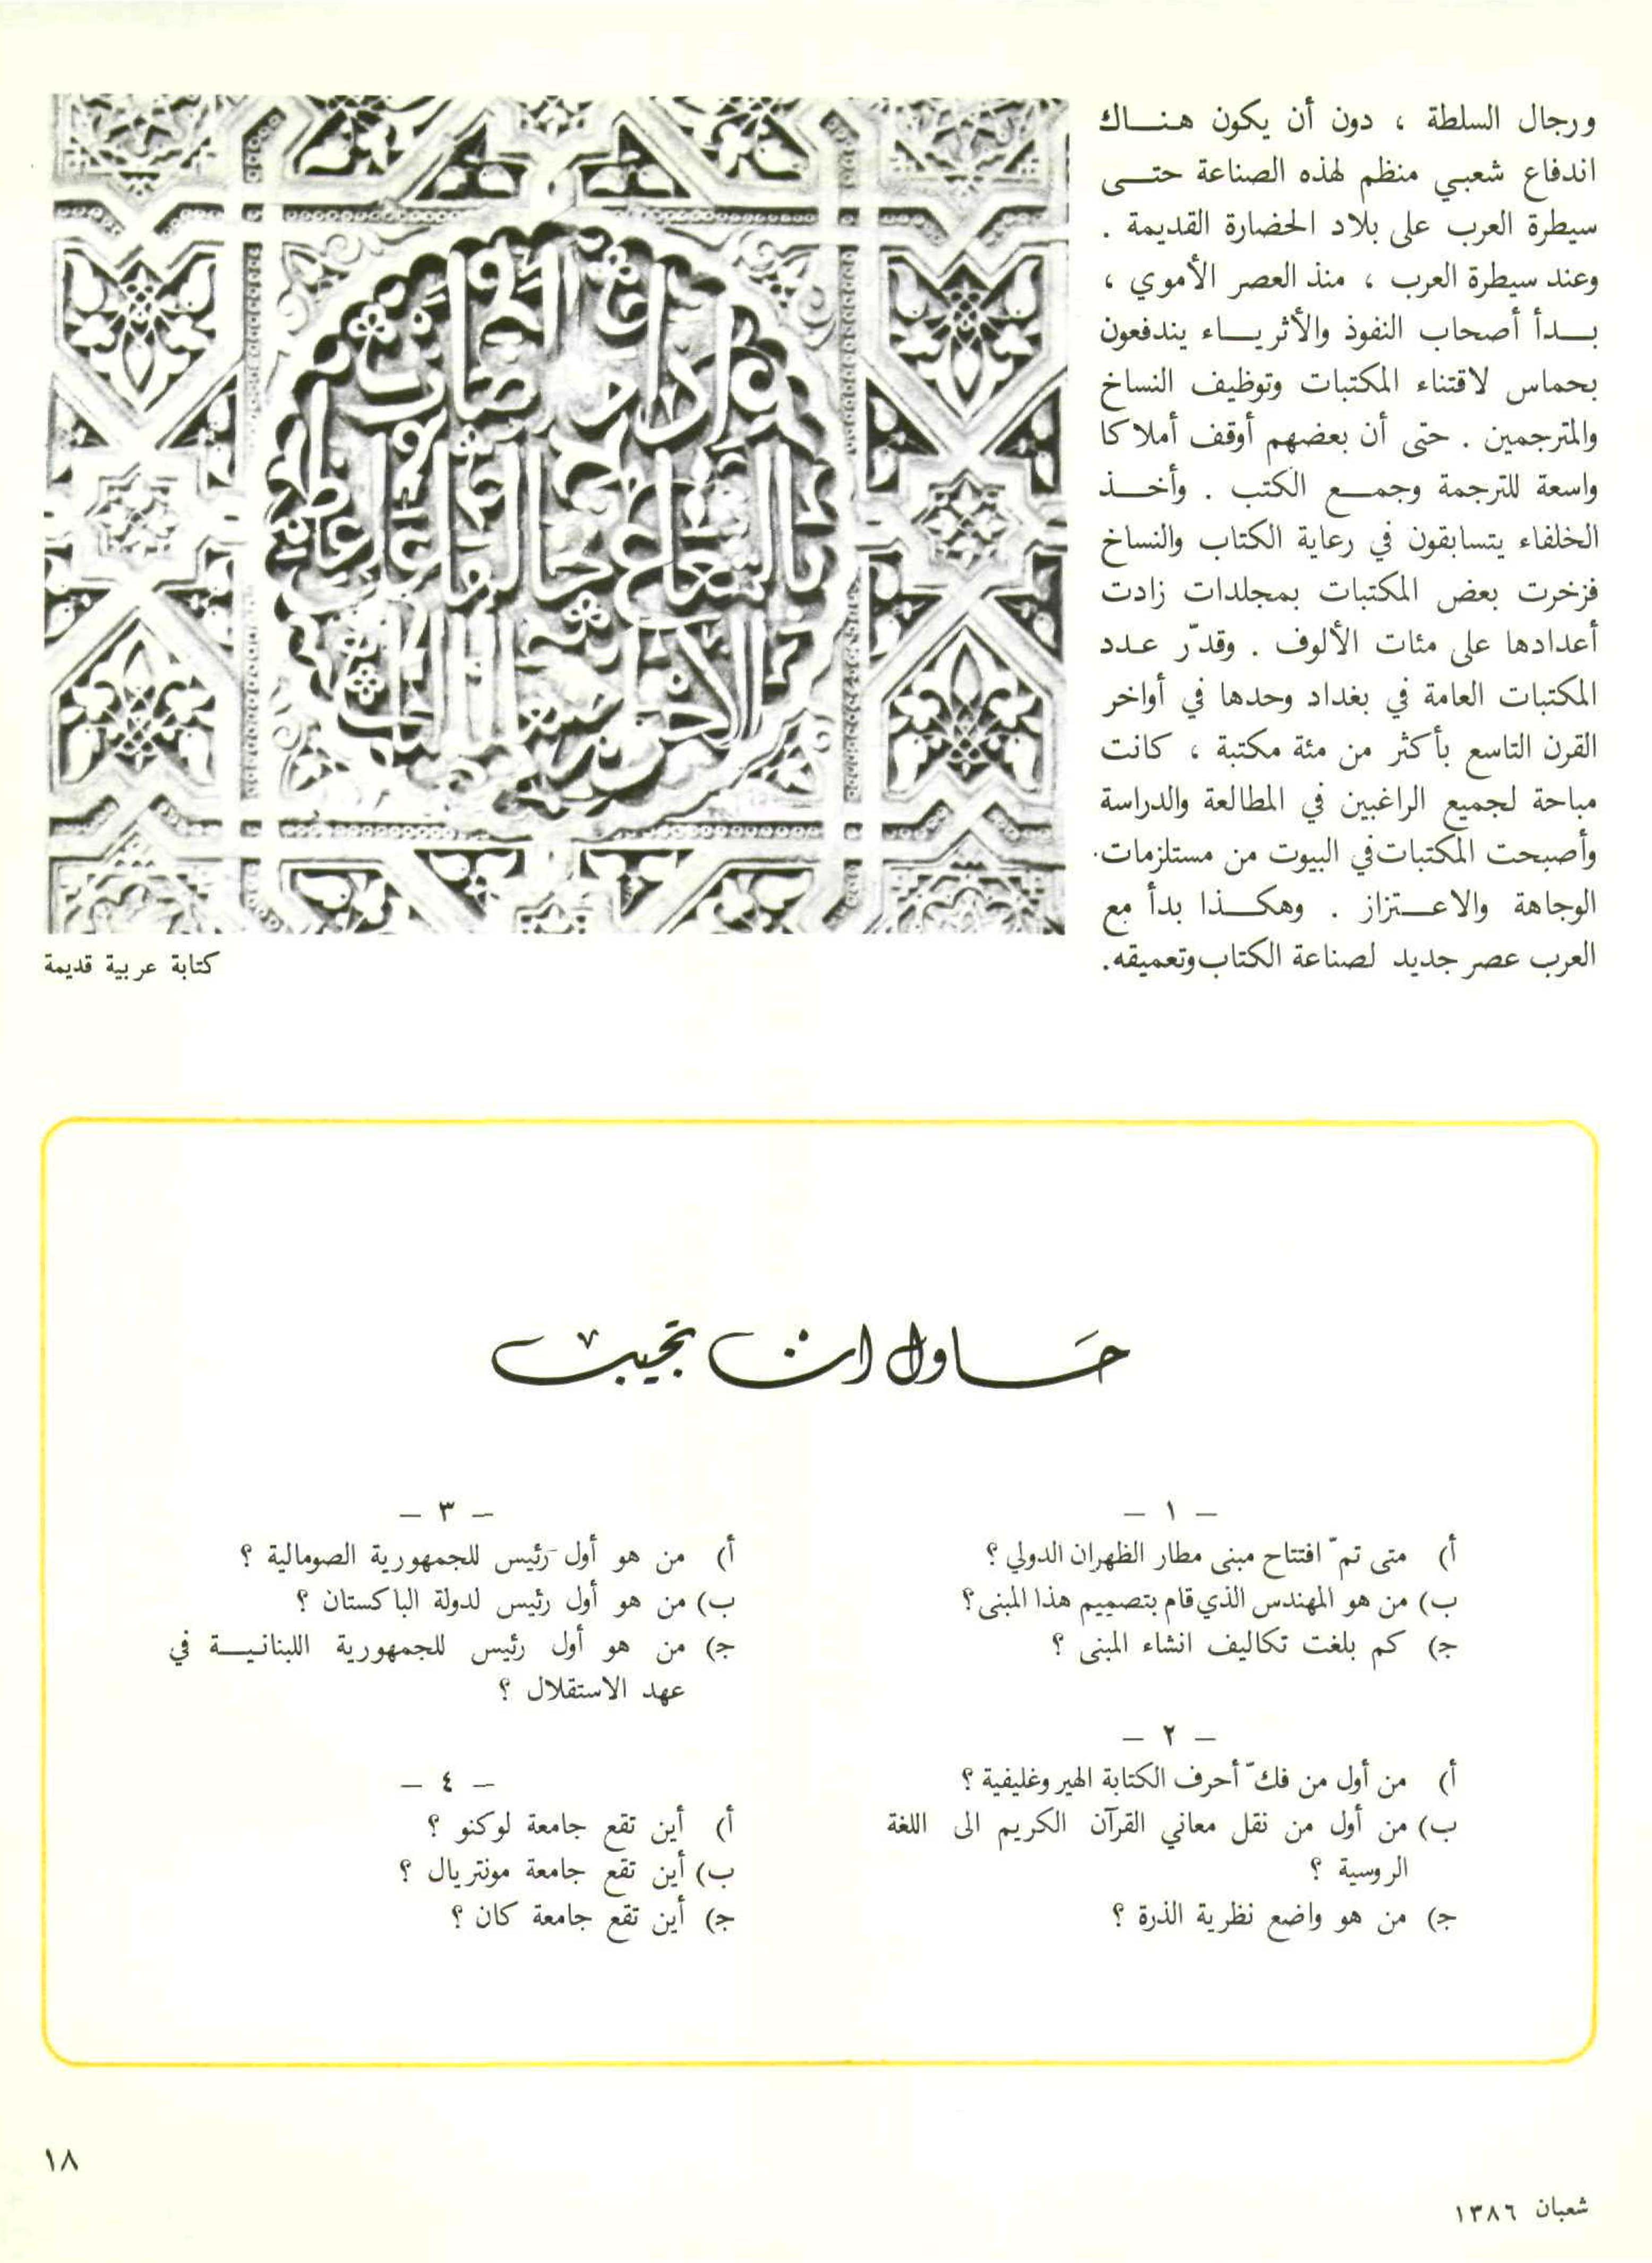 ورجال السلطة ، دون أن يكون هنـــاك
اندفاع شعبي منظم لهذه الصناعة حتـــى
سيطرة العرب على بلاد الحضارة القديمة .
وعند سيطرة العرب ، منذ العصر الأموي ،
بـــدأ أصحاب النفوذ والأثريـــاء يندفعون
بحماس لاقتناء المكتبات وتوظيف النساخ
والمترجمين . حتى أن بعضهم أوقف أملاكا
واسعة للترجمة وجمـــع الكتب . وأخـــذ
الخلفاء يتسابقون في رعاية الكتاب والنساخ
فزخرت بعض المكتبات بمجلدات زادت
أعدادها على مئات الألوف . وقدّر عـدد
المكتبات العامة في بغداد وحدها في أواخر
القرن التاسع بأكثر من مئة مكتبة ، كانت
مباحة لجميع الراغبين في المطالعة والدراسة
وأصبحت المكتبات في البيوت من مستلزمات
الوجاهة والاعـــتزاز . وهكـــذا بدأ مع
العرب عصر جديد لصناعة الكتاب وتعميقه.
كتابة عربية قديمة
حَاول ان تجيب
— ١ —
أ) متى تمّ افتتاح مبنى مطار الظهران الدولي ؟
ب) من هو المهندس الذي قام بتصميم هذا المبنى؟
ج) كم بلغت تكاليف انشاء المبنى ؟
— ٢ —
أ) من أول من فكّ أحرف الكتابة الهيروغليفية ؟
ب) من أول من نقل معاني القرآن الكريم الى اللغة
الروسية ؟
ج) من هو واضع نظرية الذرة ؟
— ٣ —
أ) من هو أول رئيس للجمهورية الصومالية ؟
ب) من هو أول رئيس لدولة الباكستان ؟
ج) من هو أول رئيس للجمهورية اللبنانيـــة في
عهد الاستقلال ؟
— ٤ —
أ) أين تقع جامعة لوكنو ؟
ب) أين تقع جامعة مونتريال ؟
ج) أين تقع جامعة كان ؟
١٨
شعبان ١٣٨٦